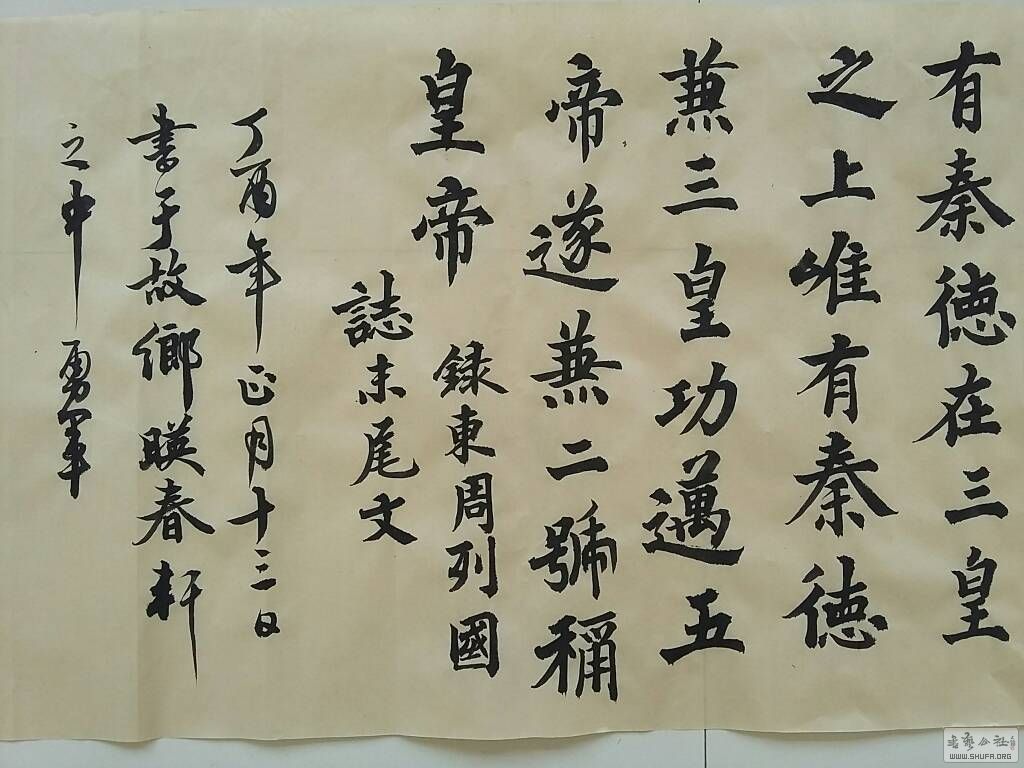 有秦德在三皇
之上唯有秦德
兼三皇功邁五
帝遂兼二號稱
皇帝
錄東周列國
誌末尾文
丁酉年正月十三日
書于故鄉暎春軒
之中 勇軍
书艺公社
WWW.SHUFA.ORG